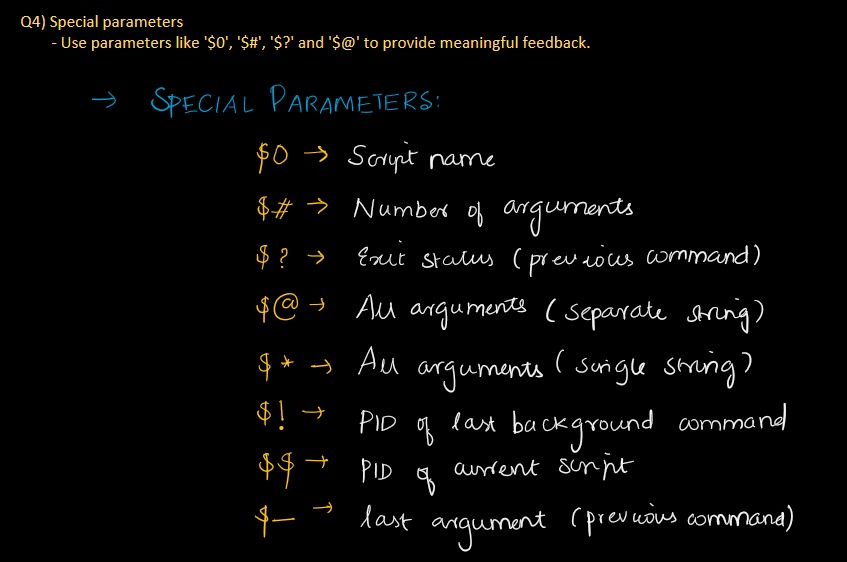 Q4) Special parameters
- Use parameters like '$0', '$#', '$?' and '$@' to provide meaningful feedback.
→ SPECIAL PARAMETERS:
$0 → Script name
$# → Number of arguments
$? → Exit status (previous command)
$@ → All arguments (separate string)
$* → All arguments (single string)
$! → PID of last background command
$$ → PID of current script
$_ → last argument (previous command)